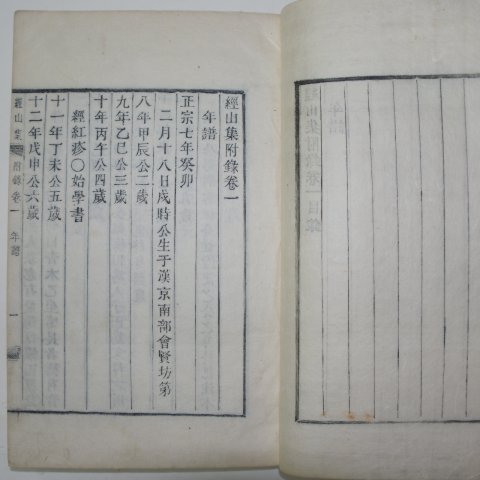 經山集附錄卷一
年譜
正宗七年癸卯
二月十八日戌時公生于漢京南部會賢坊第
八年甲辰公二歲
九年乙巳公三歲
十年丙午公四歲
經紅疹〇始學書
十一年丁未公五歲
十二年戊申公六歲
經山集 附錄卷一 年譜 一